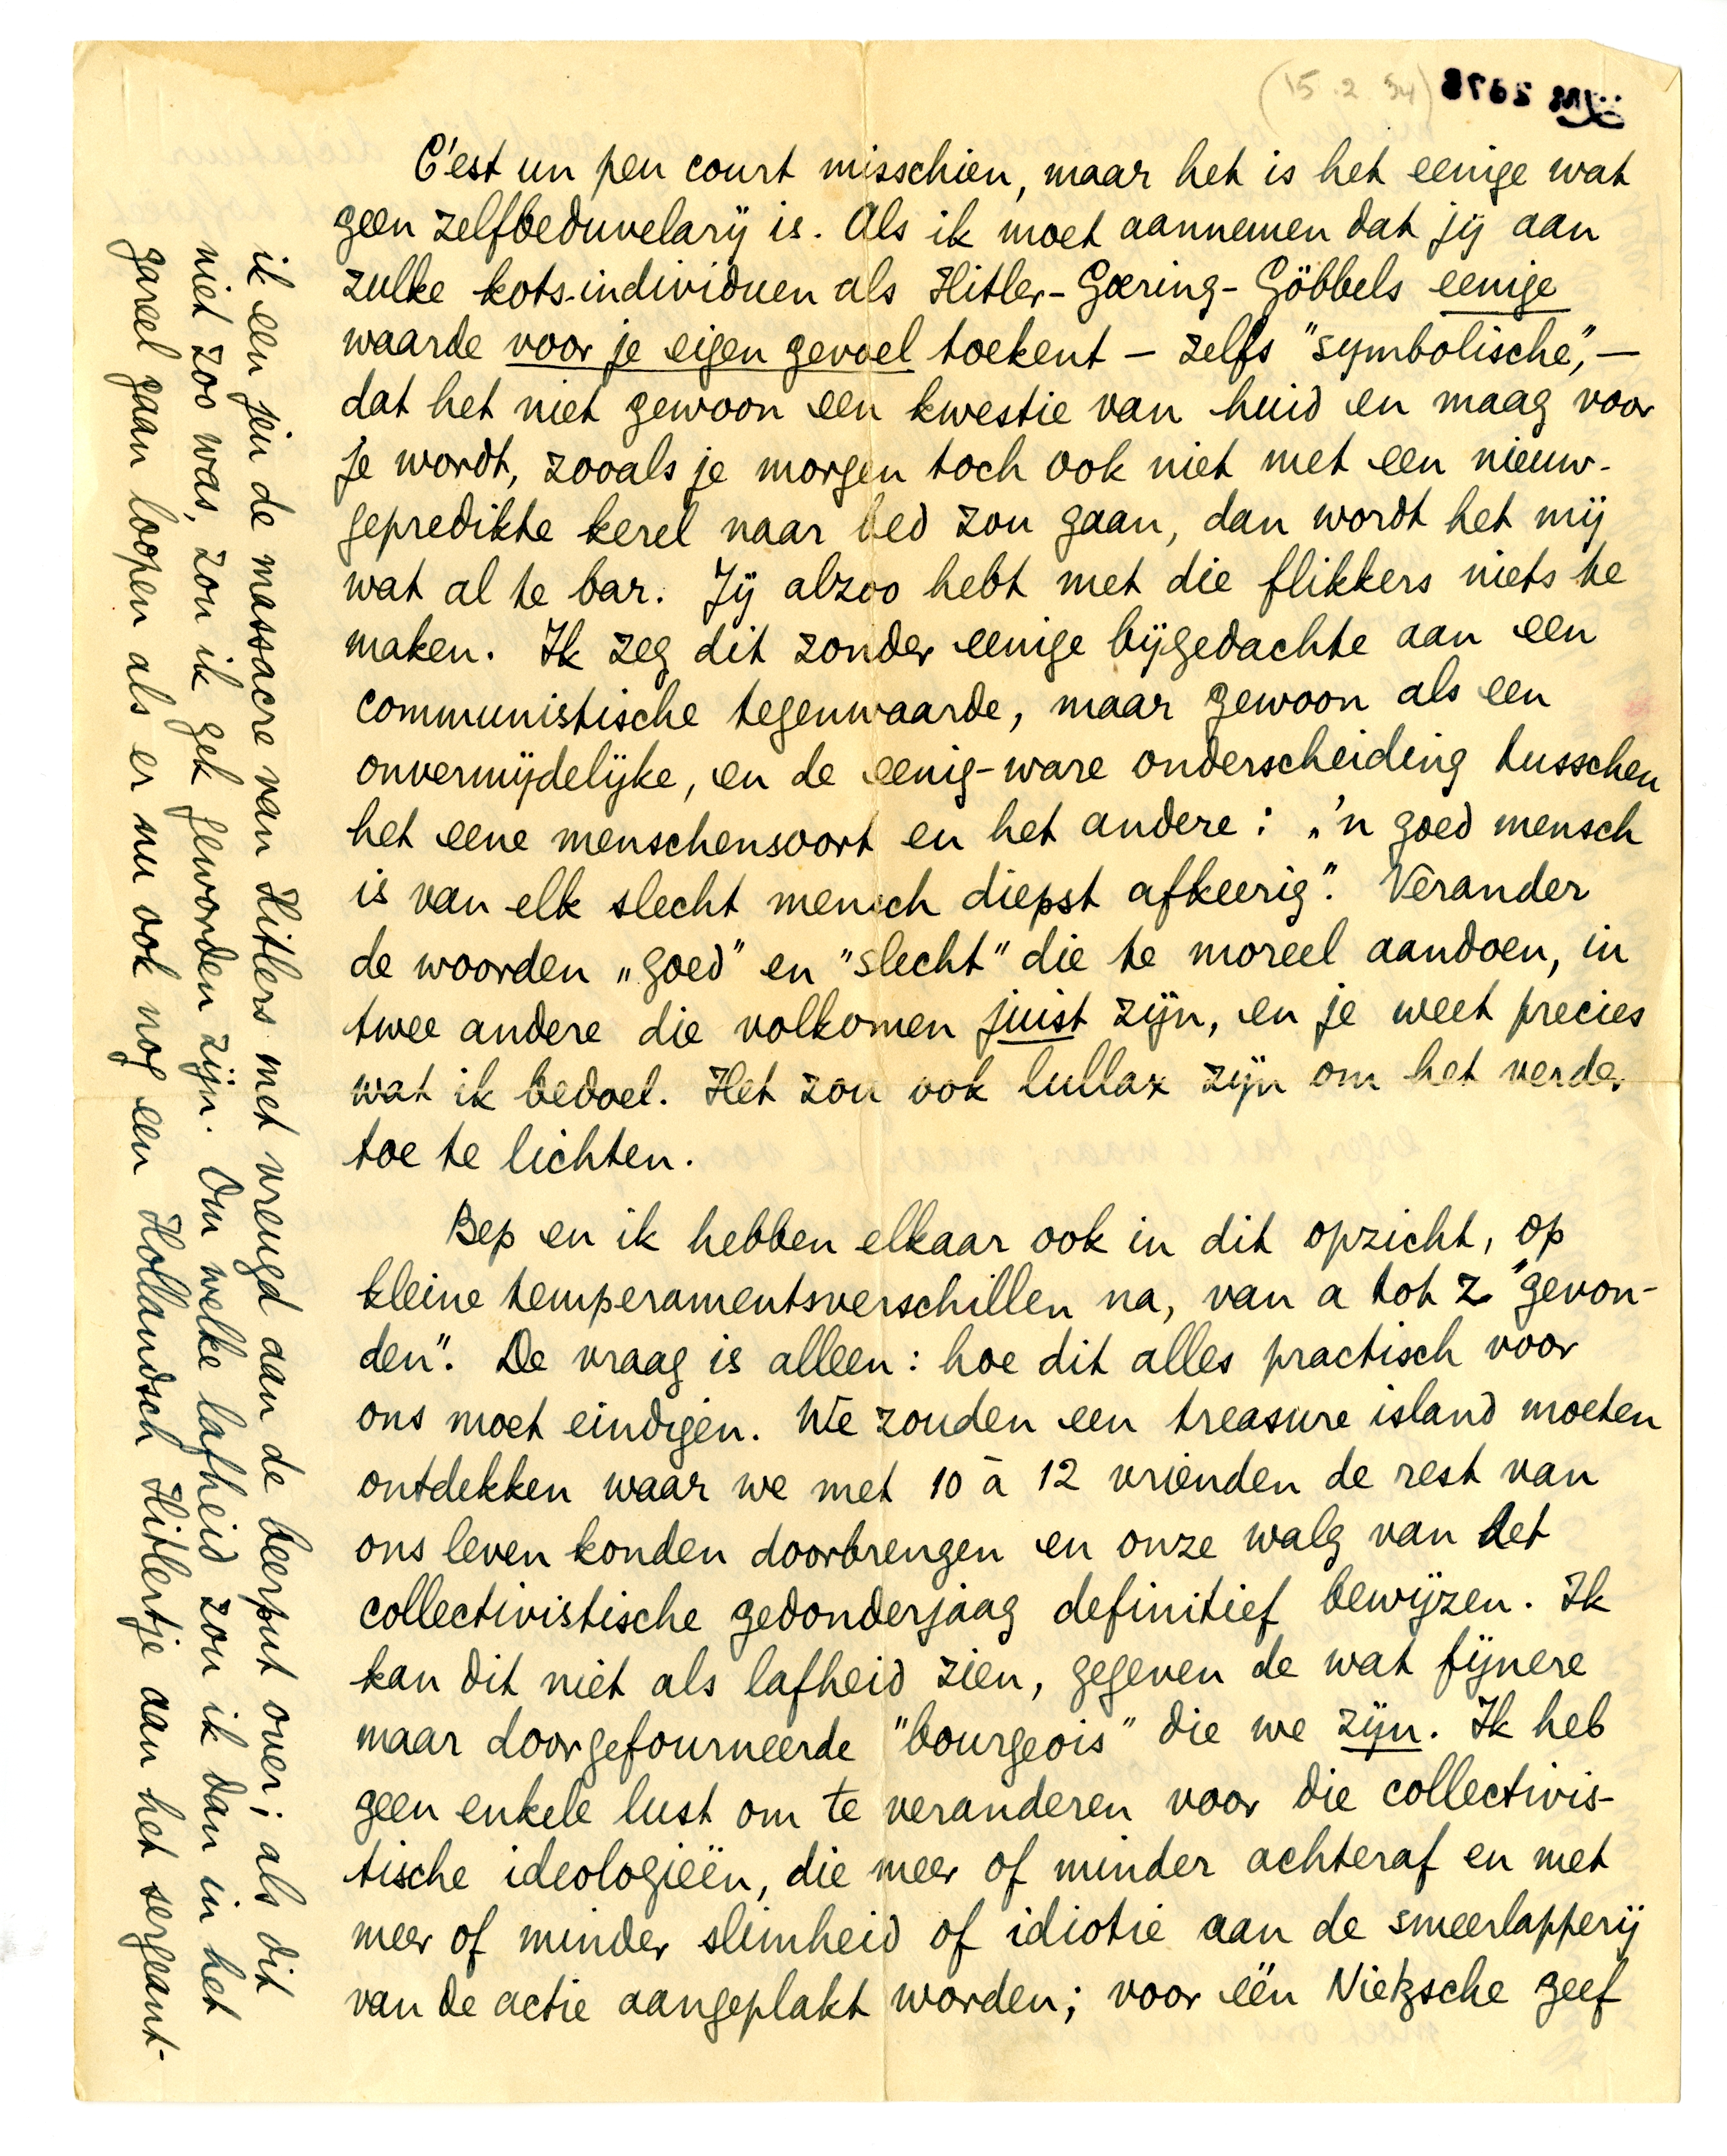 (15.2.34)
C'est un peu court misschien, maar het is het eenige wat
geen zelfbeduvelarij is. Als ik moet aannemen dat jij aan
zulke kots-individuen als Hitler-Goering-Göbbels eenige
waarde voor je eigen gevoel toekent — zelfs "symbolische", —
dat het niet gewoon een kwestie van huid en maag voor
je wordt, zooals je morgen toch ook niet met een nieuw-
gepredikte kerel naar bed zou gaan, dan wordt het mij
wat al te bar. Jij alzoo hebt met die flikkers niets te
maken. Ik zeg dit zonder eenige bijgedachte aan een
communistische tegenwaarde, maar gewoon als een
onvermijdelijke, en de eenig-ware onderscheiding tusschen
het eene menschensoort en het andere: „'n goed mensch
is van elk slecht mensch diepst afkeerig". Verander
de woorden „goed" en "slecht" die te moreel aandoen, in
twee andere die volkomen juist zijn, en je weet precies
wat ik bedoel. Het zou ook lullax zijn om het verder
toe te lichten.
Bep en ik hebben elkaar ook in dit opzicht, op
kleine temperamentsverschillen na, van a tot z "gevon-
den". De vraag is alleen: hoe dit alles practisch voor
ons moet eindigen. We zouden een treasure island moeten
ontdekken waar we met 10 à 12 vrienden de rest van
ons leven konden doorbrengen en onze walg van het
collectivistische gedonderjaag definitief bewijzen. Ik
kan dit niet als lafheid zien, gegeven de wat fijnere
maar doorgefourneerde "bourgeois" die we zijn. Ik heb
geen enkele lust om te veranderen voor die collectivis-
tische ideologieën, die meer of minder achteraf en met
meer of minder slimheid of idiotie aan de smeerlapperij
van de actie aangeplakt worden; voor één Nietzsche geef
ik een fein de massacre van Hitlers met vreugd aan de beerput over; als dit
niet zoo was, zou ik gek geworden zijn. Om welke lafheid zou ik dan in het
gareel gaan loopen als er nu ook nog een Hollandsch Hitlertje aan het sergeant-